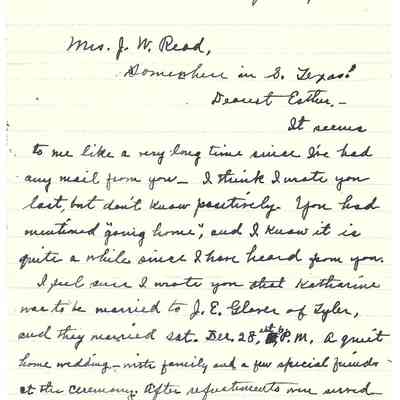 Mrs. J. W. Read,
Somewhere in S. Texas!
Dearest Esther. -
It seems
to me like a very long time since I've had
any mail from you - I think I wrote you
last, but don't know positively. You had
mentioned "going home", and I know it is
quite a while since I have heard from you.
I feel sure I wrote you that Katharine
was to be married to J. E. Glover of Tyler,
and they married Sat. Dec. 28, at 6 P.M. A quiet
home wedding - with family and a few special friends
at the ceremony. After refreshments were served